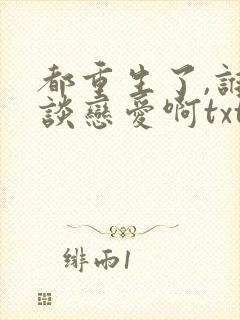 都重生了,誰
談戀愛啊txt
緋雨1